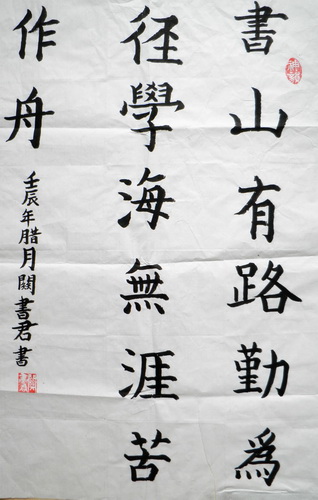 書山有路勤為
径學海無涯苦
作舟
壬辰年腊月闕書君書